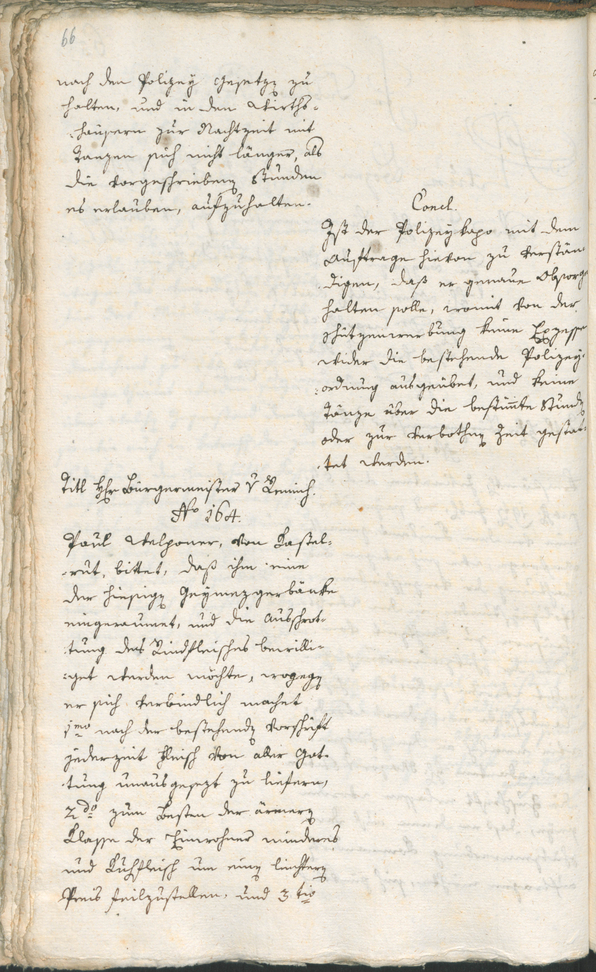 66
nach den Polizey Gesetzen zu
halten, und in den Wirths-
häusern zur Nachtzeit mit
Tanzen sich nicht länger, als
die vorgeschriebenen Stunden
es erlauben, aufzuhalten.
Concl.
Ist der Polizeykapo mit dem
Auftrage hievon zu verstän-
digen, daß er genaue Obsorge
halten solle, womit von der
Schützenwerbung keine Exzesse
wider die bestehende Polizey-
ordnung ausgeübet, und keine
Tänze über die bestimte Stunde
oder zur verbothen Zeit gestat-
tet werden.
Titl Hr Bürgermeister v
No 164.
Paul Welponer, von Castel-
rut, bittet, daß ihm eine
der hiesigen Gmeinmezgerbänke
eingeraumet, und die Ausschrot-
tung des Rindfleisches bewilli-
get werden möchte, wogegen
er sich verbindlich machet
1mo nach der bestehenden Vorschrift
jederzeit Fleisch von aller Gat-
tung unausgesezt zu liefern,
2do zum Besten der ärmern
Classe der Einwohner minderes
und Kuhfleisch um einen leichtern
Preis feilzustellen, und 3tio